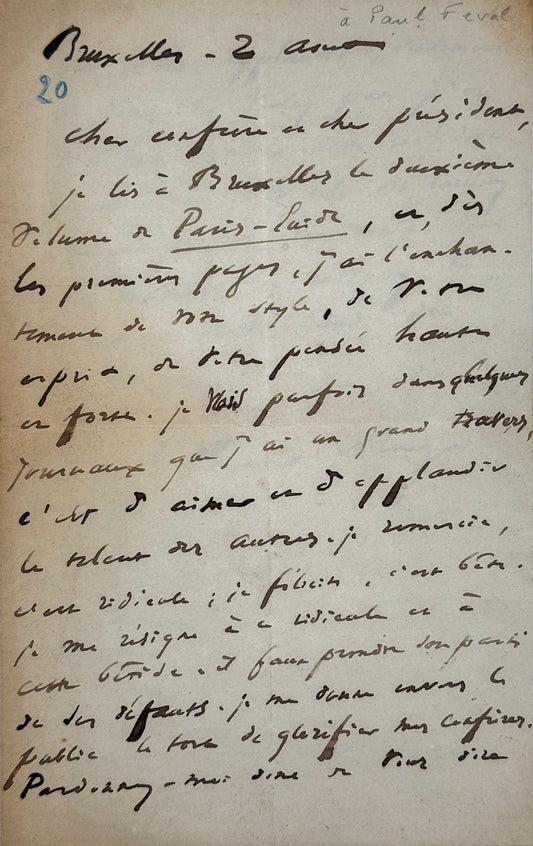 à Paul Feval
Bruxelles - 2 aout
20
cher confrère et cher président,
je lis à Bruxelles le deuxième
volume de Paris-Guide, et, dès
les premières pages, j'ai l'enchan-
tement de votre style, de votre
esprit, de votre pensée haute
et forte. je vois parfois dans quelques
journaux que j'ai un grand travers,
c'est d'aimer et d'applaudir
le talent des autres. je remercie,
c'est ridicule ; je félicite, c'est bête.
je me résigne à ce ridicule et à
cette bêtise. il faut prendre son parti
de ses défauts. je me donne envers le
public le tort de glorifier mes confrères.
Pardonnez-moi donc de vous dire